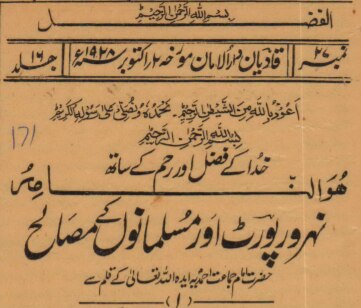 الفضل بسم اللہ الرحمٰن الرحیم
نمبر ۲۷ قادیان دارالامان مورخہ ۲ اکتوبر ۱۹۲۸ء جلد ۱۶
اعوذ باللہ من الشیطٰن الرجیم نحمدہ ونصلی علی رسولہ الکریم
بسم اللہ الرحمٰن الرحیم
171
خدا کے فضل اور رحم کے ساتھ
ھوالناصر
نہرو رپورٹ اور مسلمانوں کے مصالح
حضرت امام جماعت احمدیہ ایدہ اللہ تعالیٰ کے قلم سے
(۱)